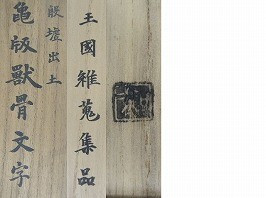 王國維蒐集品
殷墟出土
亀版獸骨文字